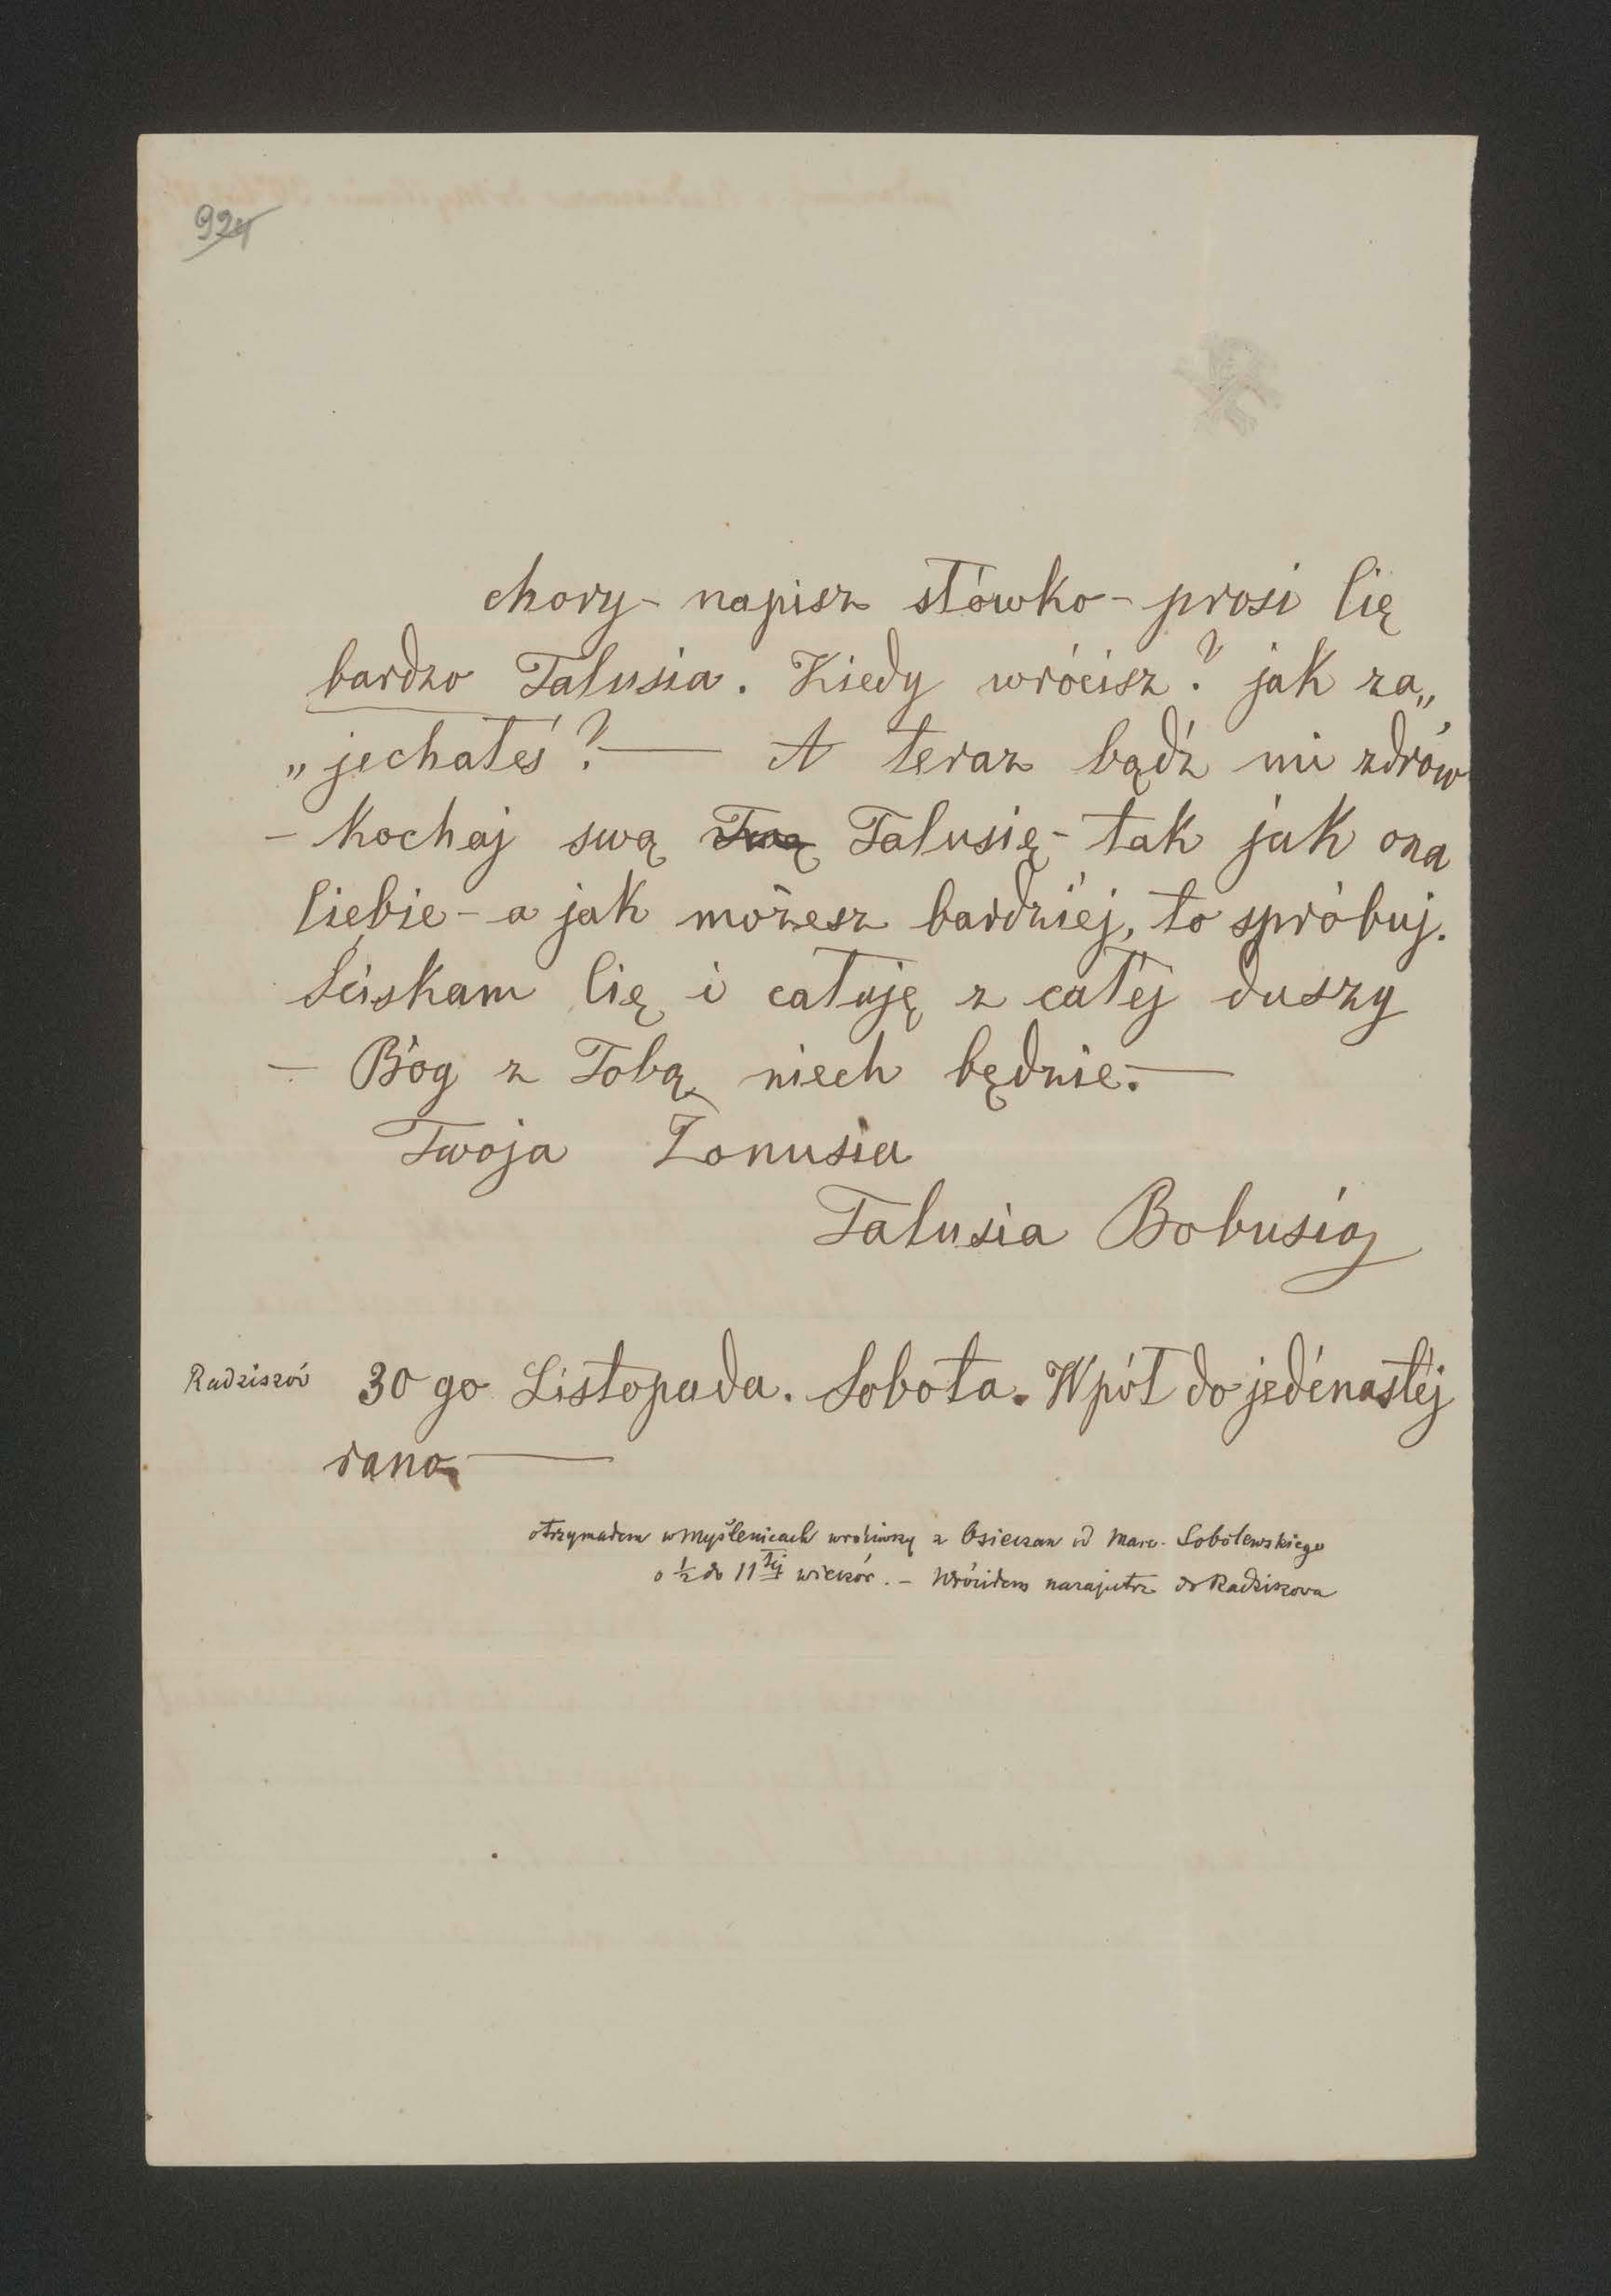 924
chory - napisz słówko - prosi Cię
bardzo Talusia. Kiedy wrócisz? jak za„
„jechałeś? — A teraz bądź mi zdrów
- Kochaj swą Twą Talusię - tak jak ona
Ciebie - a jak możesz bardziéj, to spróbuj.
Sciskam Cię i całuję z całéj duszy
- Bóg z Tobą niech będzie. —
Twoja Żonusia
Talusia Bobusia
Radziszów 30go Listopada. Sobota. Wpół do jedénastéj
rano. —
otrzymałem w Myślenicach wróciwszy z Osieczan od Marc. Sobolewskiego
o ½ do 11téj wieczór. - Wróciłem nazajutrz do Radziszowa